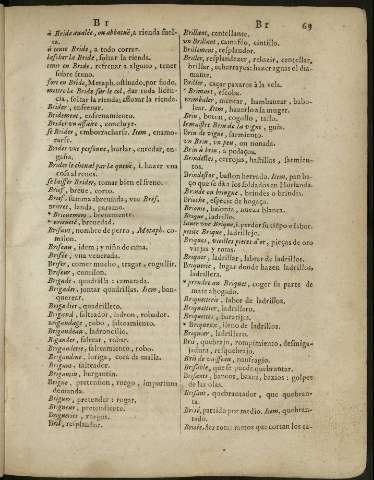 B r
B r 69
à Bride avallée, ou abbatuë, a rienda suel-
ta.
à toute Bride, a todo correr.
lascher la Bride, soltar la rienda.
tenir en Bride, refrenar a alguno, tener
sobre freno.
Metaph.
mettre la Bride sur le col, dar toda licen-
cia, soltar la rienda, afloxar la rienda.
Brider, enfrenar.
Bridement, enfrenamiento.
Brider un affaire, concluyr.
se Brider, emborracharse. Item, enamo-
rarse.
Brider une personne, burlar, enredar, en-
gañar.
Brider le cheval par la queuë, i. hazer una
cosa al reves.
se laisser Brider, tomar bien el freno.
Brief, breve, corto.
Brief, summa abreviada, vee Bref.
* Briefvement, brevemente.
* briefveté, brevedad.
Brifaut, nombre de perro, Metaph. co-
milon.
Brifeau, idem, y niño de cuna.
Brifée, una venerada.
Brifer, comer mucho, tragar, engullir.
Brifeur, comilon.
Brigade, quadrilla: camarada.
Brigader, juntar quadrillas. Item, ban-
quetear.
Brigadier, quadrillero.
Brigand, salteador, ladron, robador.
brigandage, robo, salteamiento.
Brigandeau, ladroncillo.
Brigander, saltear, robar.
Briganderie, salteamiento, robo.
Brigandine, loriga, cota de malla.
Brigant, salteador.
Brigantin, bergantin.
Brigue, pretension, ruego, importuna
demanda.
Briguer, pretender: rogar.
Brigueur, pretendiente.
Brigueries, ruegos.
Bril, resplandor.
Brillant, centellante.
un Brillant, camaféo, cintillo.
Brillement, resplandor.
Briller, resplandezer, reluzir, centellar,
brillar, echar rayos: hazer aguas el dia-
mante.
Briller, caçar paxaros à la vela.
* Brimart, escoba.
brimbaler, menear, bambanear, babo-
lear, Item, hazerlo a la muger.
Brin, boton, cogollo, tallo.
le maistre Brin de la vigne, guia.
brin de vigne, sarmiento.
un Brin, un pelo, on nonada.
Brin à brin, a pedaços.
Brindelles, cerrojas, hastillas, sarmien-
tos.
Brindestoc, baston herrado. Item, pan ba-
ço que se da a los soldados en Hollanda.
Brinde en bringue, brindes o brindis.
Brioche, especie de hogaça.
Brionne, brionia, nueza blanca.
Brique, ladrillo.
petite Brique, ladrillejo.
Briques, vieilles pieces d'or, pieças de oro
viejas y rotas.
Briquer, ladrillar, labrar de ladrillos.
Briqueterie, lugar donde hazen ladrillos,
ladrillera.
* prendre au Briquet, coger su parte de
maiz ahogado.
Briqueterie, labor de ladrillos.
Briquetier, ladrillero.
Briquettes, baratijas.
* Briqueux, lleno de ladrillos.
Briquier, ladrillero.
Bris, quebraja, rompimiento, desmiga-
jadura, resquebrajo.
Bris de vaisseau, naufragio.
Brisable, que se puede quebrantar.
Brisants, bancos, baxas, baxios: golpes
de las olas.
Brisant, quebrantador, que quebran-
ta.
Brisé, partido por medio. Item, quebran-
tado.
Brisée, hoz rota: ramos que cortan los ca-